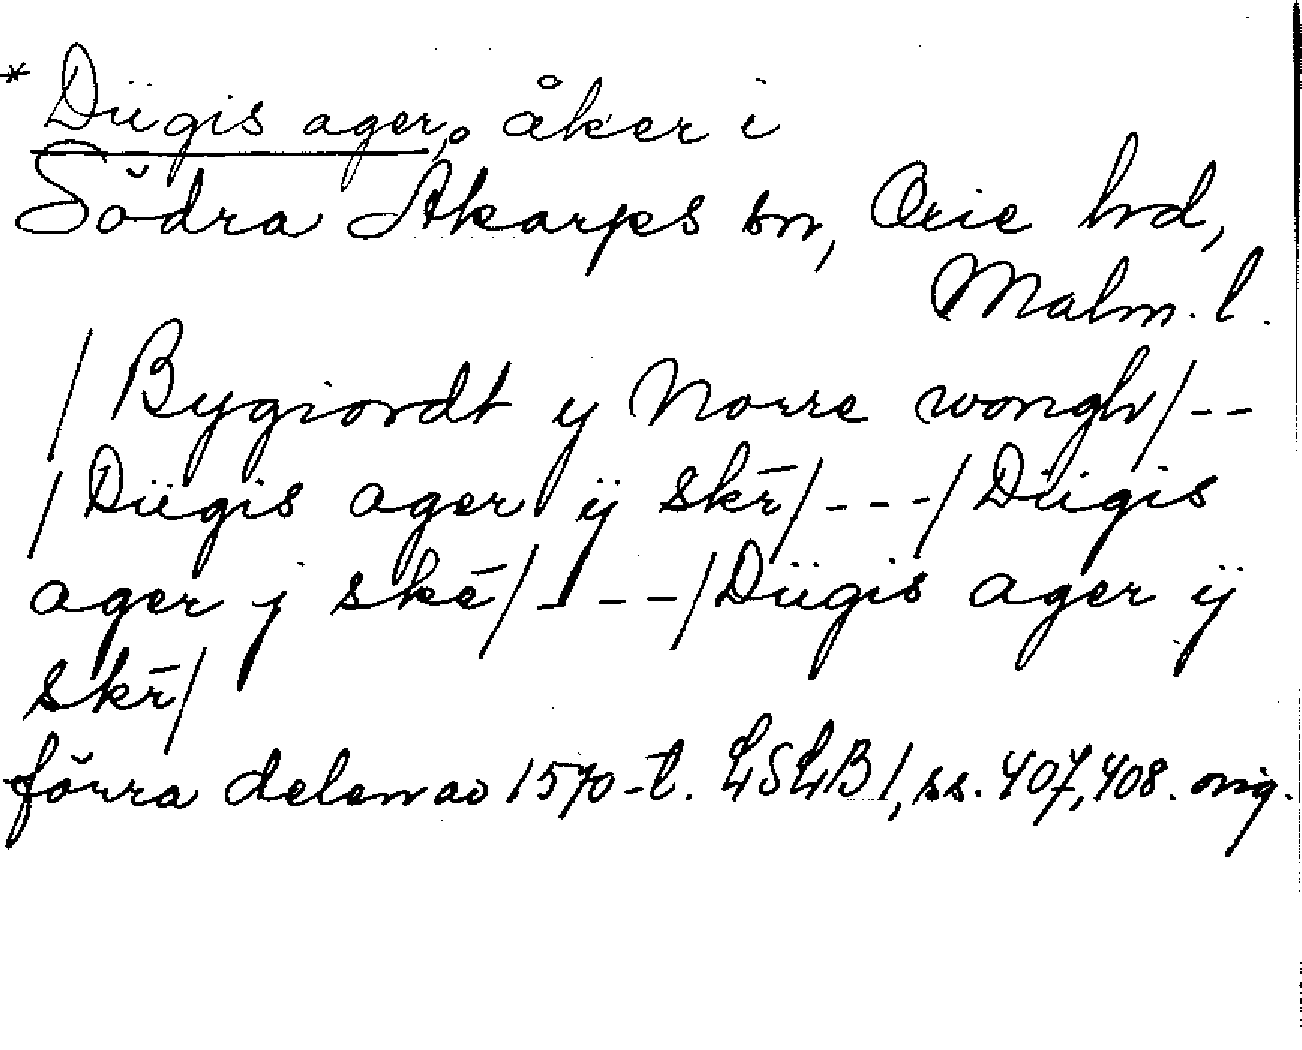 * Dügis ager, åker i
Södra Åkarps sn, Oxie hd,
Malm. l.
/ Bygiordt y Norre wongh/--
/Dügis ager ÿ skr̄/---/Dügis
ager j skē/---/Dügis ager ÿ
skr̄/
förra delen av 1570-t. LSLB 1, ss. 407, 408. orig.